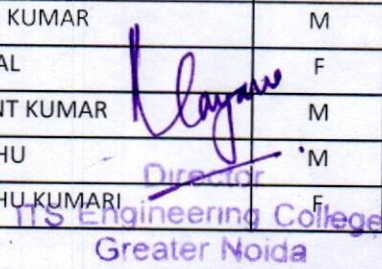 KUMAR M
AL F
NT KUMAR M
HU M
HU KUMARI F
Director
ITS Engineering College
Greater Noida